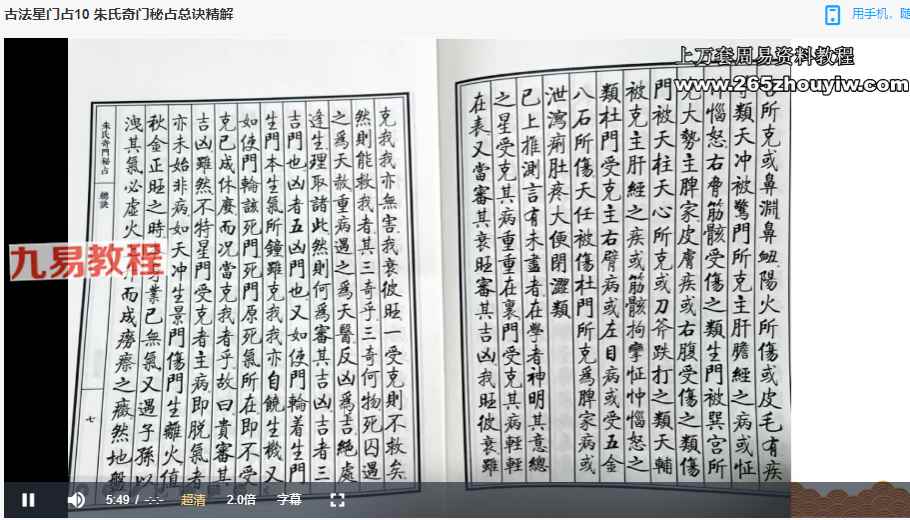 古法星门占10 朱氏奇门秘占总诀精解
用手机，随
上万套周易资料教程
www.265zhouyiw.com
所克或鼻淵鼻衄陽火所傷或皮毛有疾
類天冲被驚門所克主肝膽經之病或怔
惱怒右脅筋骸受傷之類生門被巽宮所
克大勢主脾家皮膚疾或右腹受傷之類傷
門被天柱天心所克或刀斧跌打之類天輔
被克主肝經之疾或筋骸拘攣怔忡惱怒之
類杜門受克主右臂病或左目病或受五金
八石所傷天任被傷杜門所克為脾家病或
泄瀉痢肚疼大便閉澀類
已上推測言有未盡者在學者神明其意總
之星受克其病重重在裏門受克其病輕輕
在表又當審其衰旺審其吉凶我旺彼衰雖
克我我亦無害我衰彼旺一受克則不救矣
然則能救我者其三奇乎三奇何物死囚遇
之為天赦重病遇之為天醫反凶為吉絕處
逢生理取諸此然則何為審其吉凶吉者三
吉門也凶者五凶門也又如使門輪着生門
生門本生氣所鍾雖克我我亦自饒生機又
如使門輪該死門死門原死氣所在即不受
克已成休廢而況當克我者乎故曰貴審其
吉凶雖然不特星門受克者主病即脫氣者
亦未始非病如天冲生景門傷門生離火值
秋金正旺之時業已無氣又遇子孫以
洩其氣必虛火而成癆瘵之癥然地盤
朱氏奇門秘占 總訣
七
九易教程
5:49 / -:-
超清
2.0倍
字幕